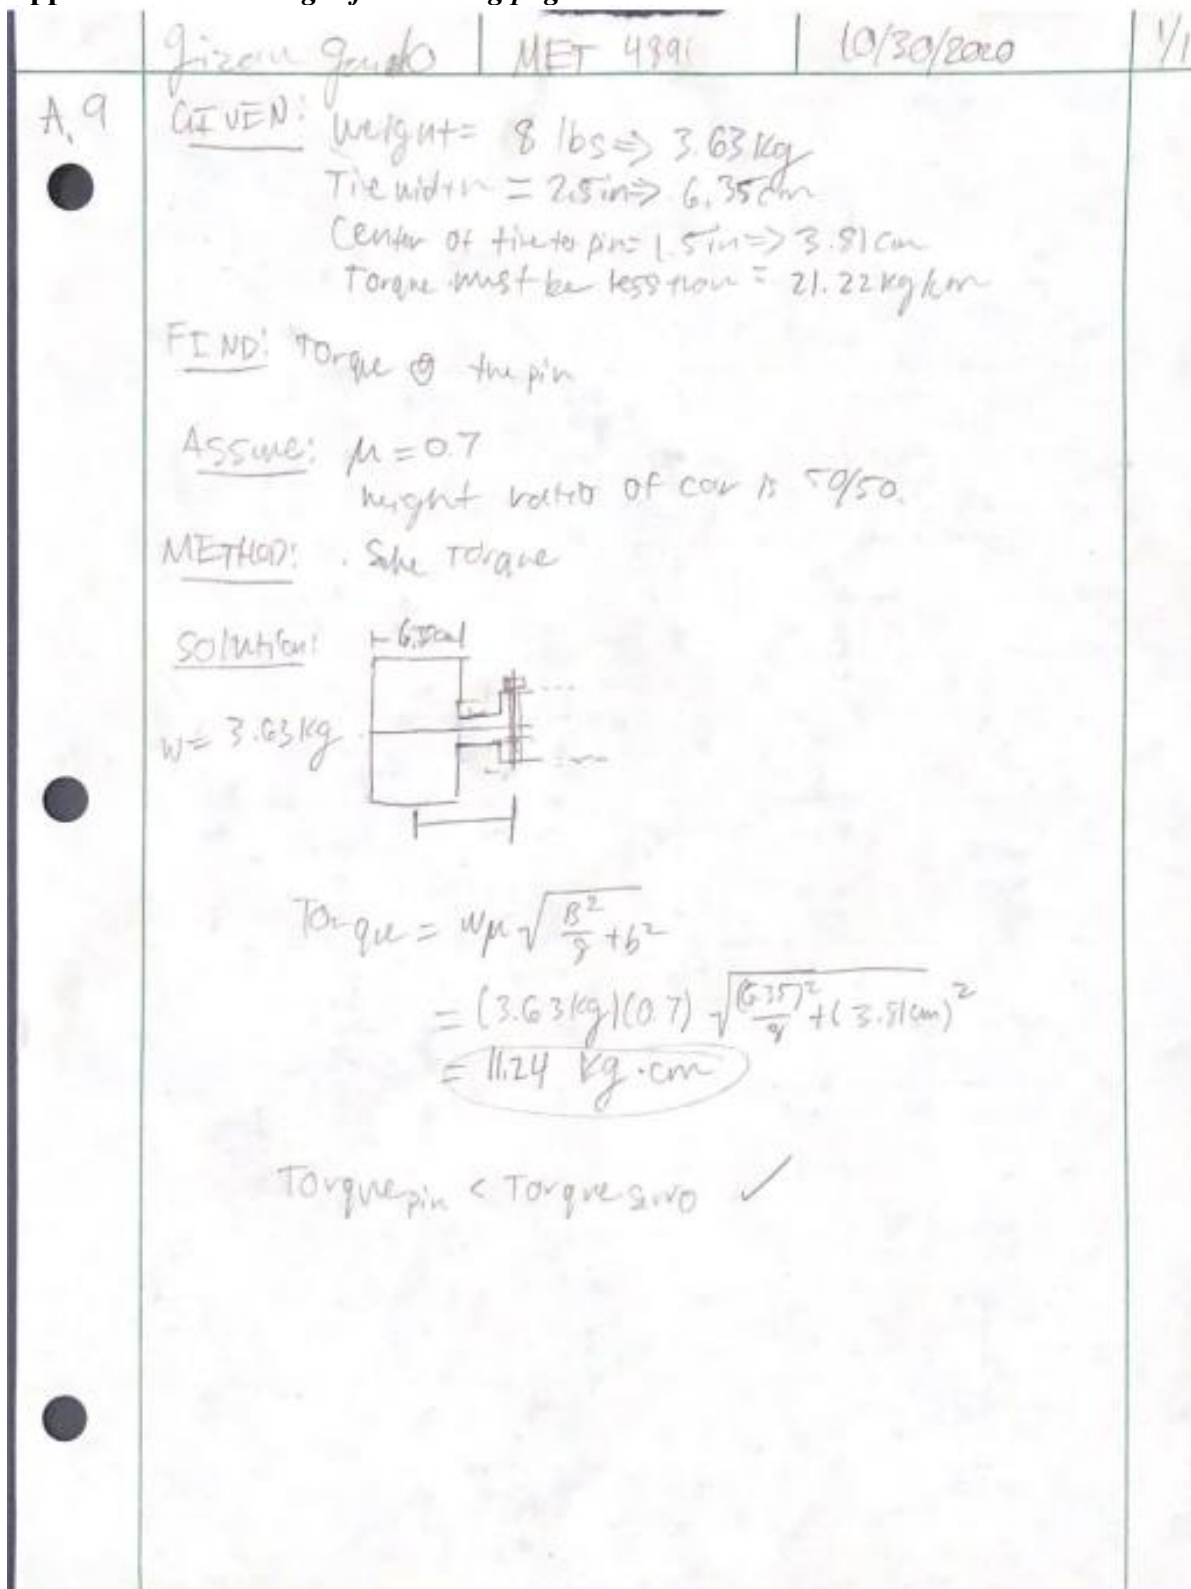 MET 489 10/30/2020 1/1
A.9 GIVEN: Weight = 8 lbs => 3.63 kg
Tire width = 2.5 in => 6.35 cm
Center of tire to pin = 1.5 in => 3.81 cm
Torque must be less than = 21.22 kg/cm
FIND: Torque @ the pin
Assume: μ = 0.7
weight ratio of car is 50/50.
METHOD: . Solve Torque
Solution:
6.35cm
w = 3.63 kg
Torque = Wμ √(B²/8 + b²)
= (3.63 kg)(0.7) √((6.35)²/8 + (3.81cm)²
= 11.24 kg·cm
Torque pin < Torque servo ✓